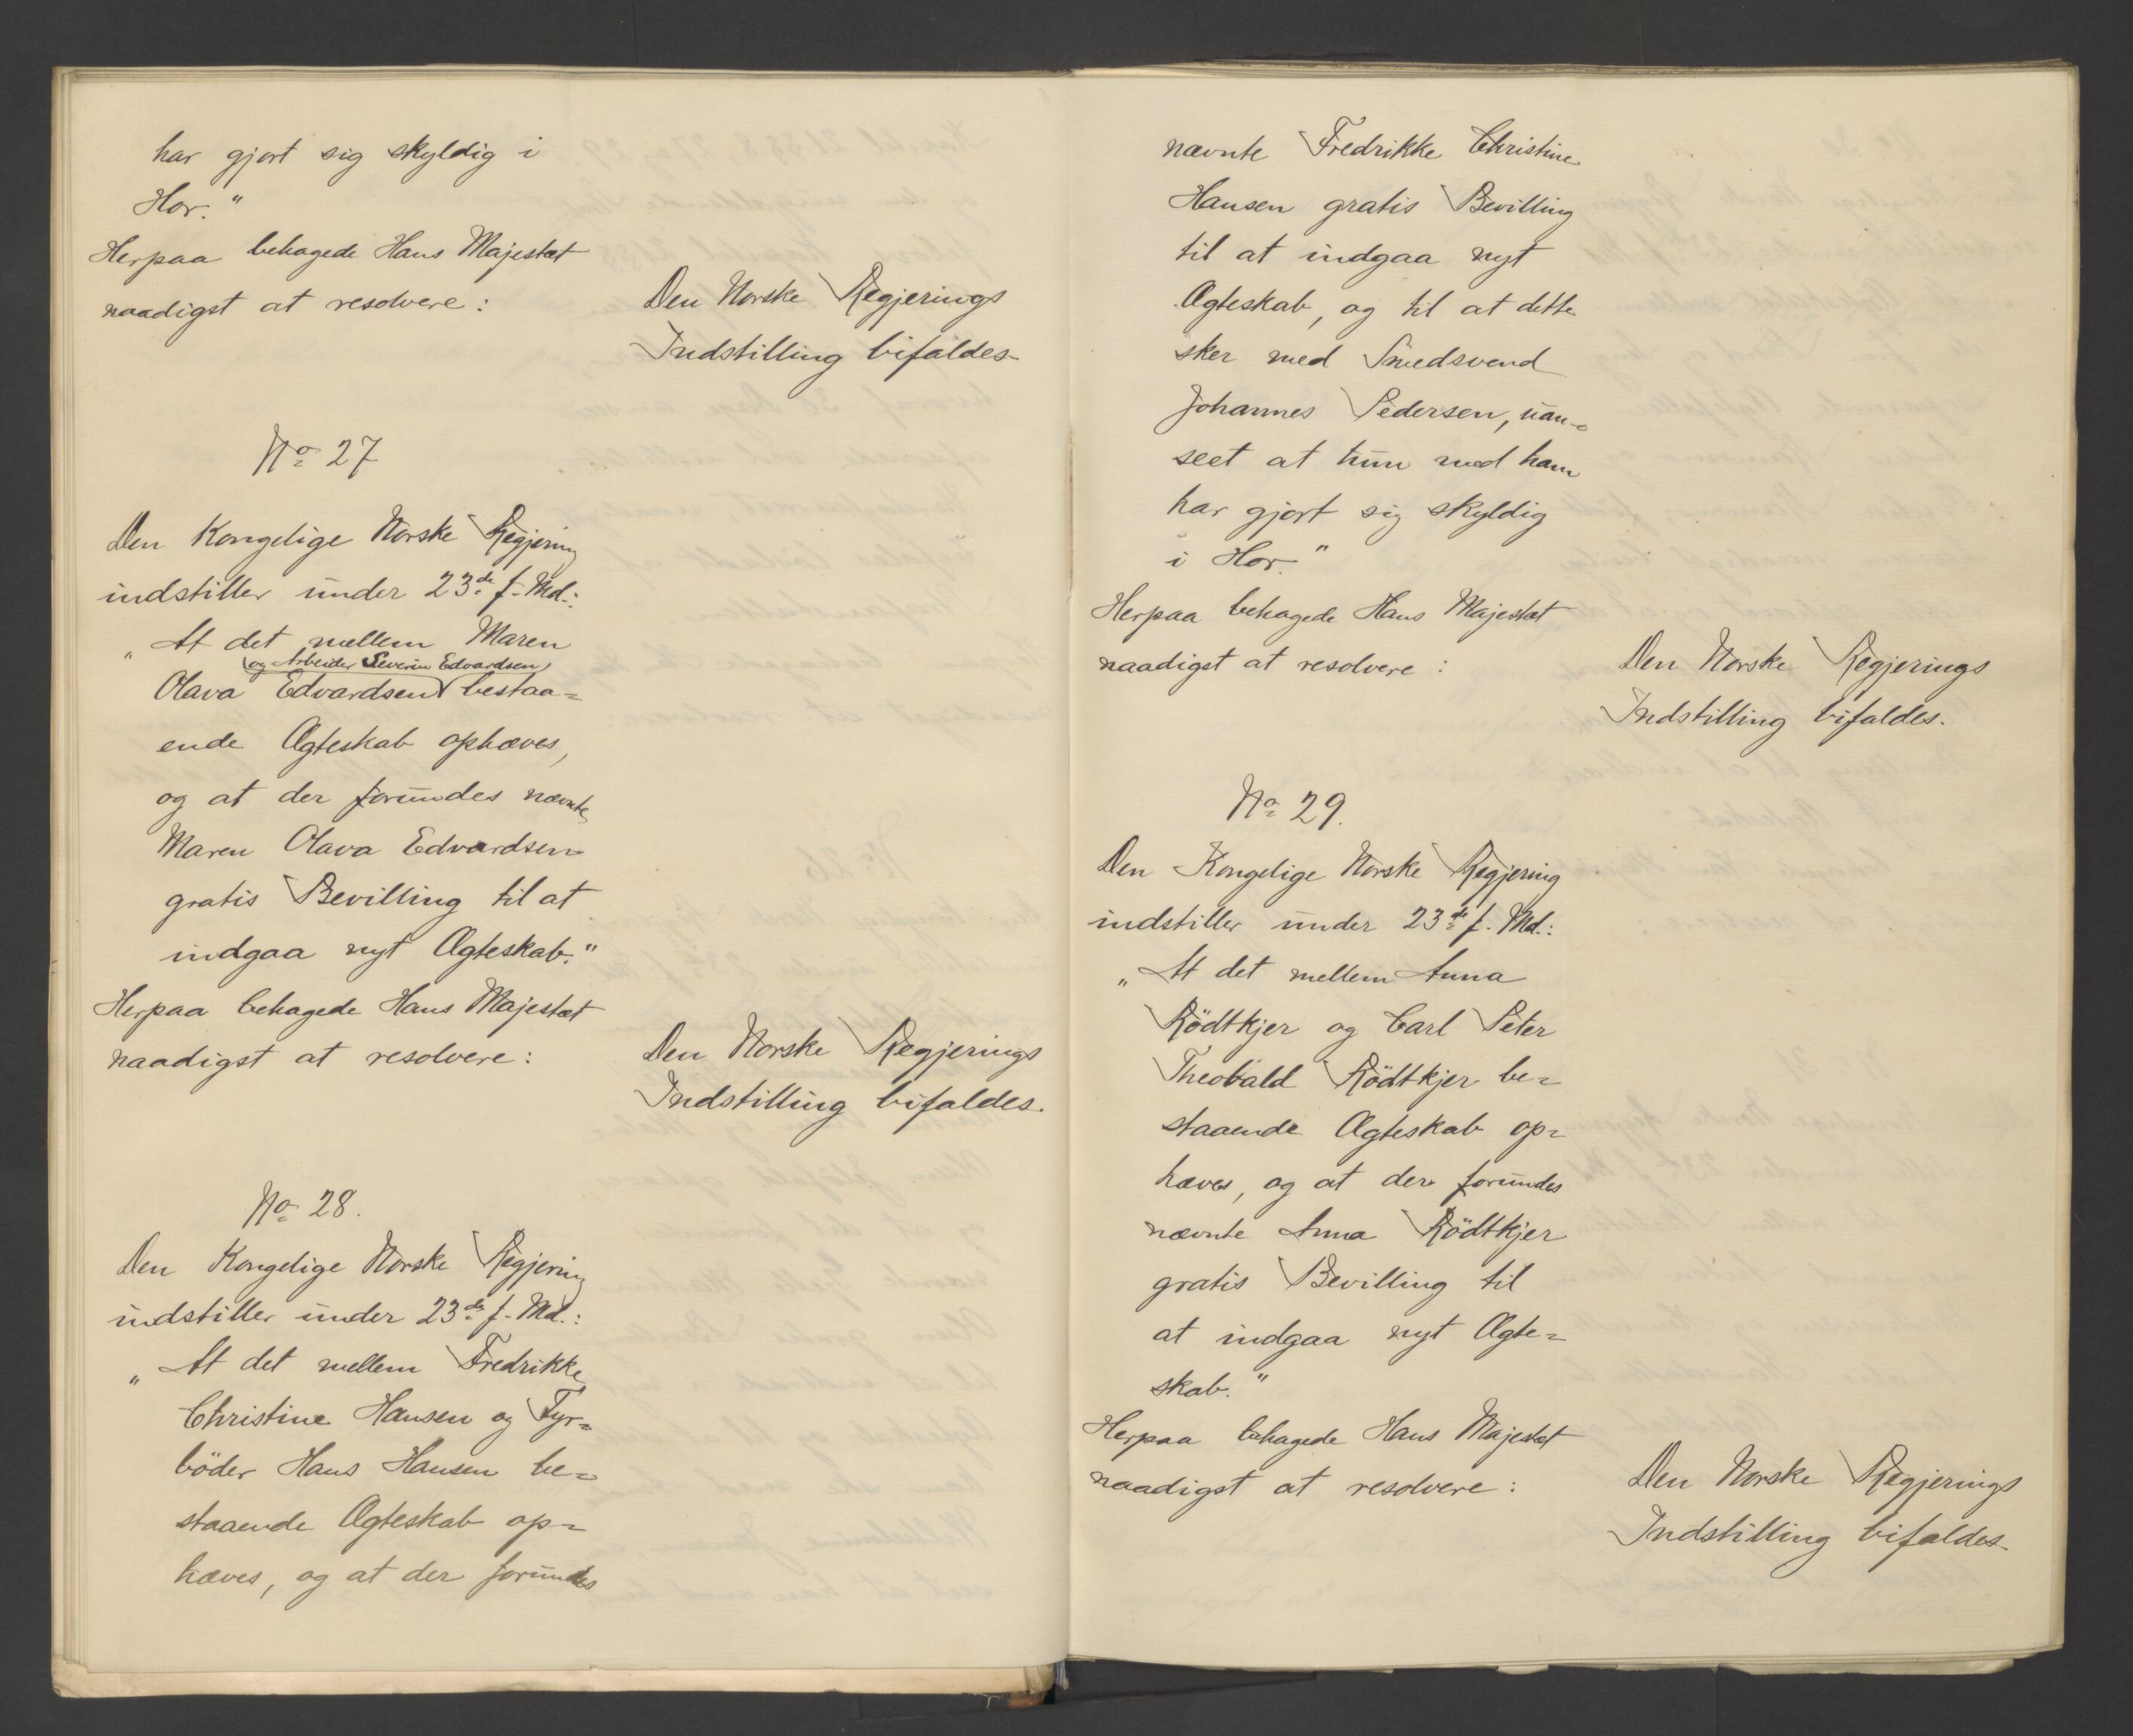 har gjort sig skyldig i
Hor."
Herpaa behagede Hans Majestæt
naadigst at resolvere:
Den Norske Regjerings
Indstilling bifaldes.
No 27
Den Kongelige Norske Regjering
indstiller under 23de f. Md.:
"At det mellem Maren
og Arbeider Severin Edvardsen
Olava Edvardsen bestaa=
ende Ægteskab ophæves,
og at der forundes nævnte
Maren Olava Edvardsen
gratis Bevilling til at
indgaa nyt Ægteskab."
Herpaa behagede Hans Majestæt
naadigst at resolvere:
Den Norske Regjerings
Indstilling bifaldes.
No 28.
Den Kongelige Norske Regjering
indstiller under 23de f. Md.:
"At det mellem Fredrikke
Christine Hansen og Fyr=
böder Hans Hansen be=
staaende Ægteskab op=
hæves, og at der forundes
nævnte Fredrikke Christine
Hansen gratis Bevilling
til at indgaa nyt
Ægteskab, og til at dette
sker med Smedsvend
Johannes Pedersen, uan=
seet at hun med ham
har gjort sig skyldig
i Hor."
Herpaa behagede Hans Majestæt
naadigst at resolvere:
Den Norske Regjerings
Indstilling bifaldes.
No 29.
Den Kongelige Norske Regjering
indstiller under 23de f. Md.:
"At det mellem Anna
Rödtkjer og Carl Peter
Theobald Rödtkjer be=
staaende Ægteskab op=
hæves, og at der forundes
nævnte Anna Rödtkjer
gratis Bevilling til
at indgaa nyt Ægte=
skab."
Herpaa behagede Hans Majestæt
naadigst at resolvere:
Den Norske Regjerings
Indstilling bifaldes.